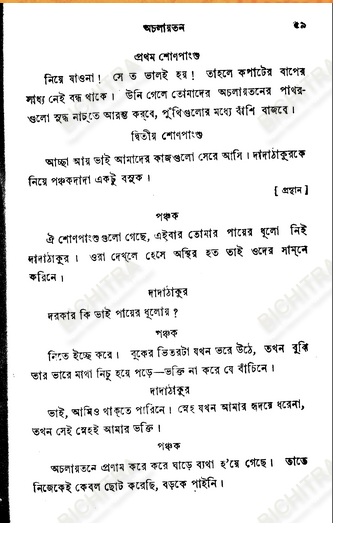 অচলায়তন ৫৯
প্রথম শোণপাংশু
নিয়ে যাওনা! সে ত ভালই হয়! তাহলে কপাটের বাপের
সাধ্য নেই বন্ধ থাকে। উনি গেলে তোমাদের অচলায়তনের পাথর-
গুলো সুদ্ধ নাচতে আরম্ভ করবে, পুঁথিগুলোর মধ্যে বাঁশি বাজবে।
দ্বিতীয় শোণপাংশু
আচ্ছা আয় ভাই আমাদের কাজগুলো সেরে আসি। দাদাঠাকুরকে
নিয়ে পঞ্চকদাদা একটু বসুক।
[ প্রস্থান ]
পঞ্চক
ঐ শোণপাংশুগুলো গেছে, এইবার তোমার পায়ের ধূলো নিই
দাদাঠাকুর। ওরা দেখলে হেসে অস্থির হত তাই ওদের সামনে
করিনে।
দাদাঠাকুর
দরকার কি ভাই পায়ের ধূলোয়?
পঞ্চক
নিতে ইচ্ছে করে। বুকের ভিতরটা যখন ভরে উঠে, তখন বুঝি
তার ভারে মাথা নিচু হয়ে পড়ে—ভক্তি না করে যে বাঁচিনে।
দাদাঠাকুর
ভাই, আমিও থাকতে পারিনে। স্নেহ যখন আমার হৃদয়ে ধরেনা,
তখন সেই স্নেহই আমার ভক্তি।
পঞ্চক
অচলায়তনে প্রণাম করে করে ঘাড়ে ব্যথা হ'য়ে গেছে। তাতে
নিজেকেই কেবল ছোট করেছি, বড়কে পাইনি।
BICHITRA